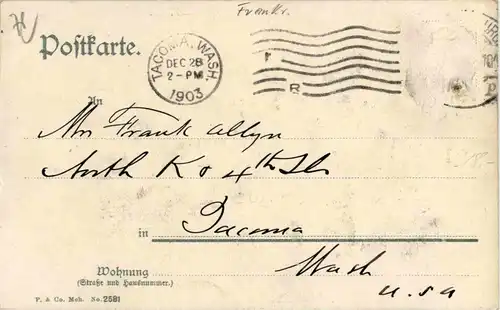 Frankr.
Postkarte.
TACOMA, WASH.
DEC 28
2-PM
1903
R
An
Mrs Frank Allyn
North K & 4th Sts
in Tacoma
Wash
U.S.A
Wohnung
(Straße und Hausnummer.)
P. & Co. Mch. No. 2581